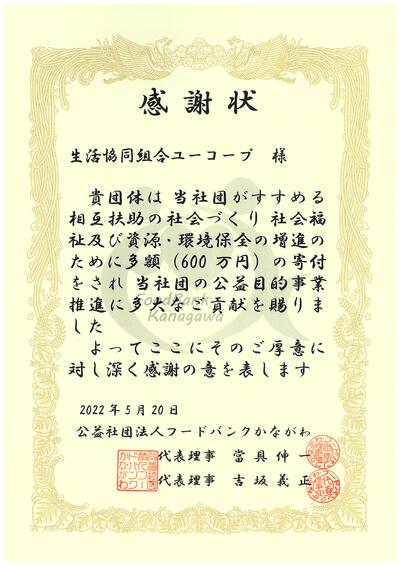 感謝状
生活協同組合ユーコープ 様
貴団体は 当社団がすすめる
相互扶助の社会づくり 社会福
祉及び資源・環境保全の増進の
ために多額(600万円)の寄付
をされ 当社団の公益目的事業
推進に多大なご貢献を賜りま
した
よってここにそのご厚意に
対し深く感謝の意を表します
Food Bank
Kanagawa
2022年5月20日
公益社団法人フードバンクかながわ
代表理事 當具伸一
代表理事 吉坂義正